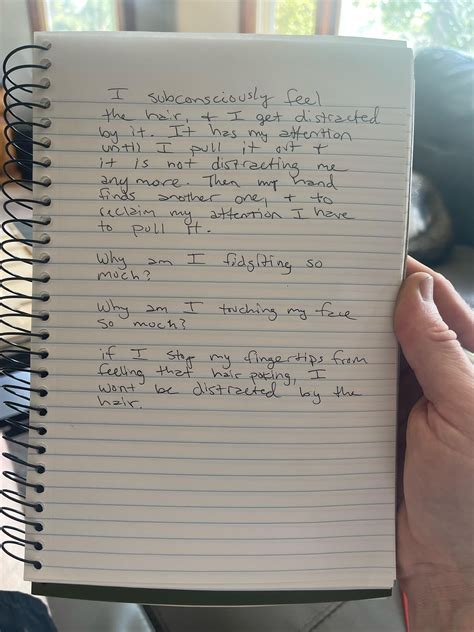 I subconsciously feel
the hair, + I get distracted
by it. It has my attention
until I pull it out +
it is not distracting me
any more. Then my hand
finds another one, + to
reclaim my attention I have
to pull it.
Why am I fidgiting so
much?
Why am I touching my face
so much?
if I stop my fingertips from
feeling that hair poking, I
wont be distracted by the
hair.